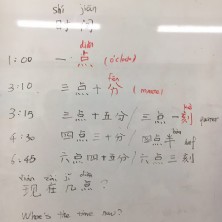 shí jiān
时间
diǎn
1:00 一点 (o'clock)
fēn
3:10 三点十分 (minute)
3:15 三点十五分/三点一刻 quarter
bàn
4:30 四点三十分/四点半 half
6:45 六点四十五分/六点三刻
xiàn zài jǐ diǎn
现在几点?
What's the time now?